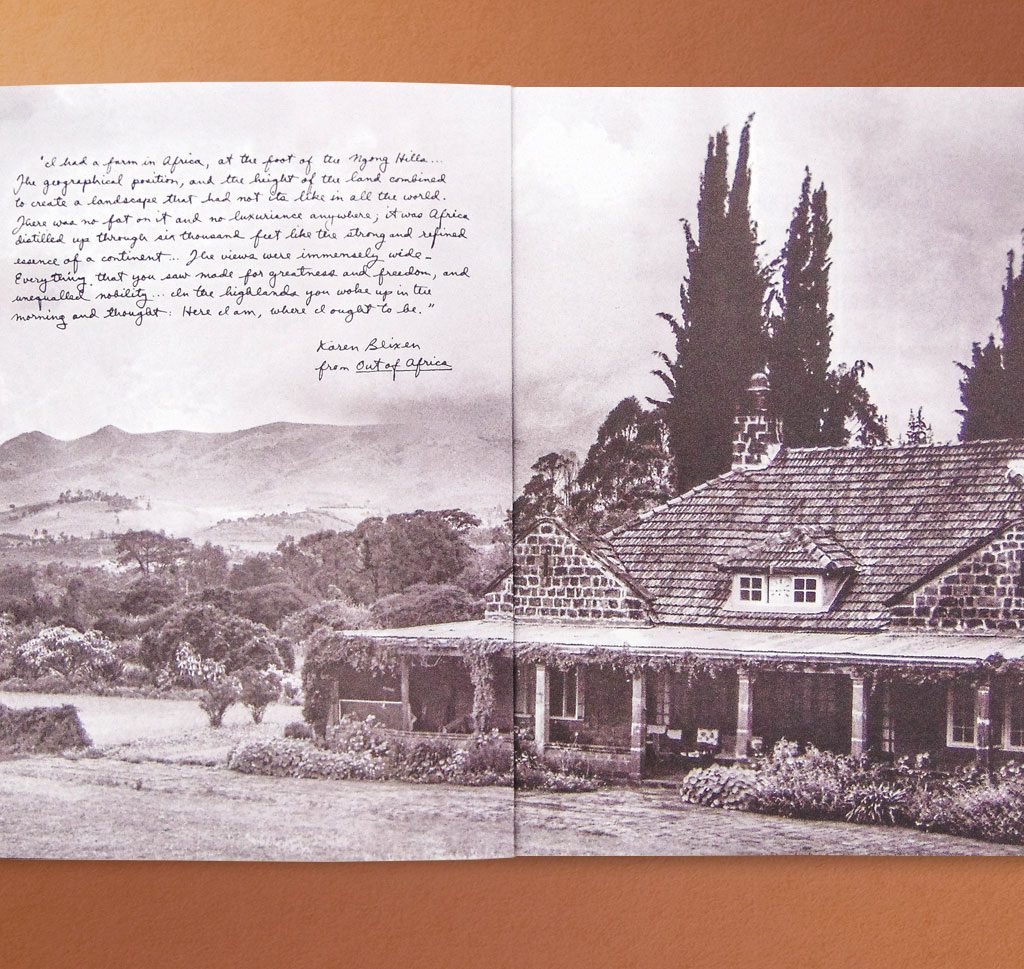 "I had a farm in Africa, at the foot of the Ngong Hills...
The geographical position, and the height of the land combined
to create a landscape that had not its like in all the world.
There was no fat on it and no luxuriance anywhere; it was Africa
distilled up through six thousand feet like the strong and refined
essence of a continent... The views were immensely wide—
Everything that you saw made for greatness and freedom, and
unequalled nobility... In the highlands you woke up in the
morning and thought: Here I am, where I ought to be."
Karen Blixen
from Out of Africa